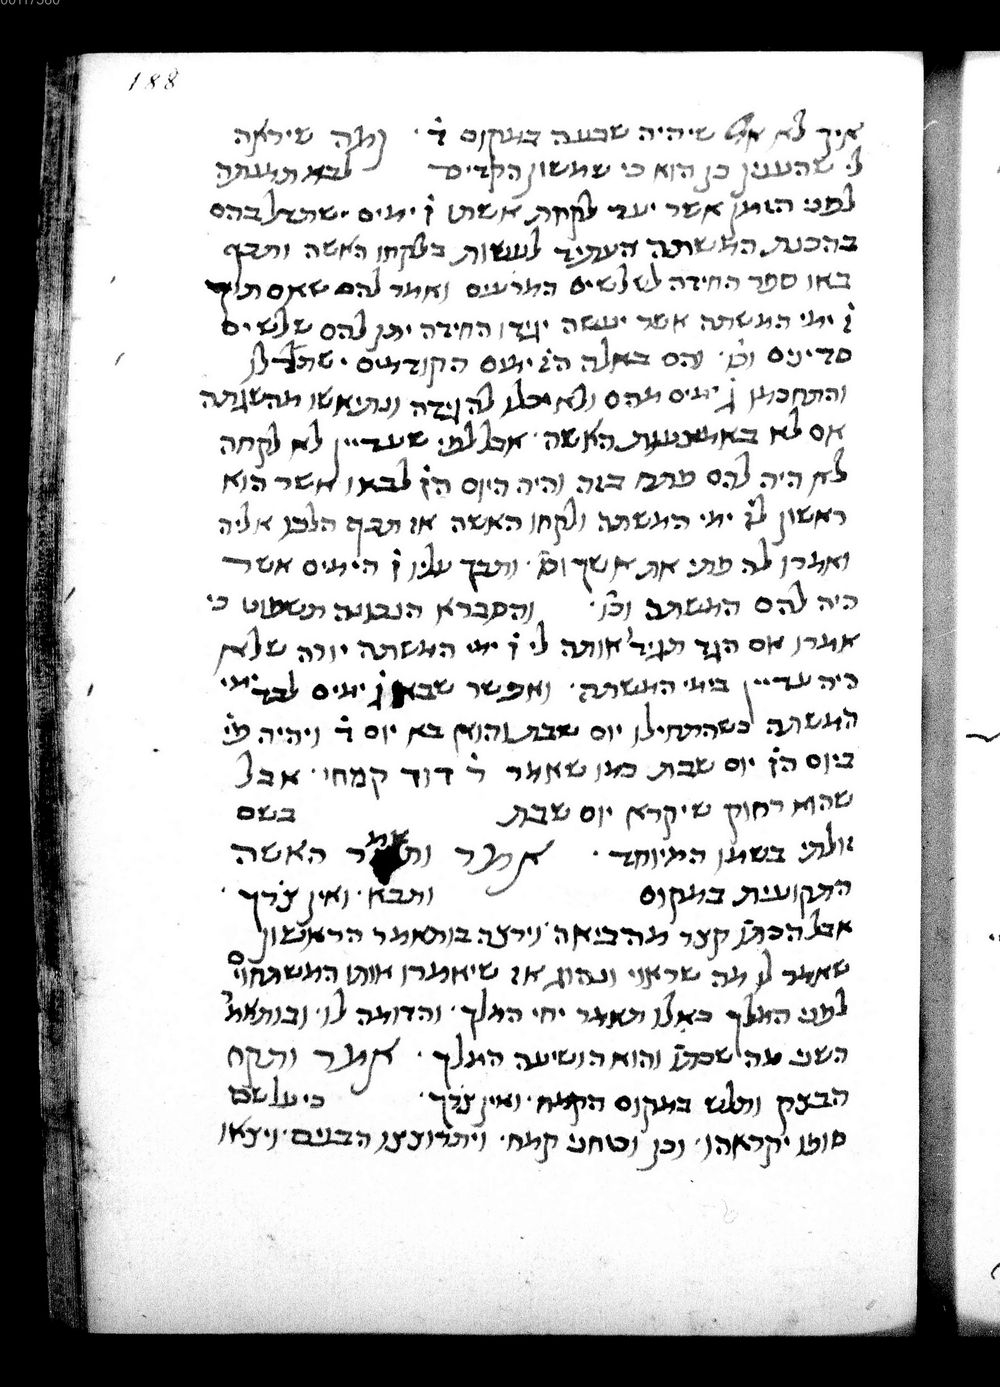 188
איך לא אמ' שיהיה שבעה במקום ד' · ומה שיראה
לי שהענין כן הוא כי שמשון הקדים לבא תמנתה
לפני הזמן אשר יעד לקחת אשתו ז' ימים · שתדל בהם
בהכנת המשתה העתיד לעשות בלקחו האשה ותכף
באו ספר החידה לשלשים המרעים ואמר להם שאם תוך
ז' ימי המשתה אשר יעשה יגידו החידה יתן להם שלשים
סדינים וכו' · והם באלה הז' ימים הקודמים ישתדלו
והתחכמו ג' ימים מהם ולא יכלו להגידה ונתיאשו מהשגתה
אם לא באמצעות האשה · אבל לפי שעדיין לא לקחה
לא היה להם פתח בזה והיה היום הז' לבאו אשר הוא
ראשון לז' ימי המשתה ולקחו האשה אז תכף הלכו אליה
ואמרו לה פתי את אישך וכו' · ותבך עליו ז' הימים אשר
היה להם המשתה וכו' · והסברא הנכונה תשפוט כי
אמרו אם הגד תגיד' אותה לי ז' ימי המשתה יורה שלא
היה עדיין בימי המשתה · ואפשר שבא ג' ימים לבד ימי
המשתה כשהתחילו יום שבת והוא בא יום ד' ויהיה פי'
ביום הז' יום שבת כמו שאמר ר' דוד קמחי · אבל
שהוא רחוק שיקרא יום שבת בשם
זולתי בשמו המיוחד · אמר ותאמר האשה
התקועית במקום ותבא · ואין צורך ·
אבל הכתו' קצר מה ביאה · וירצה בותאמר הראשון
שאמר לו מה שראוי ונהוג אז שיאמרו אותו המשתחוים
לפני המלך כאלו תאמר יחי המלך · והדומה לו · ובותאמ'
השני מה שכתו' והוא הושיעה המלך · אמר ותקח
הבצק ותלש במקום הקמח · ואין צורך · כי על שם
סופו יקראהו · וכן וטחני קמח · ויתרוצצו הבנים · ויצאו